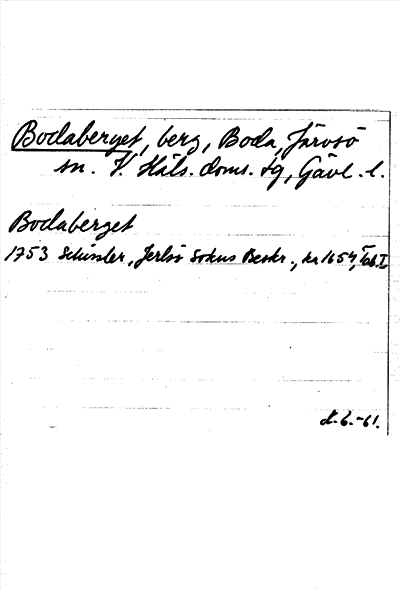 Bodaberget, berg, Boda, Järvsö
sn. V. Häls. doms. tg, Gävl. l.
Bodaberget
1753 Schissler, Jerlsö Sokns Beskr., kr 1654, Tab. I
d. 6. -61.